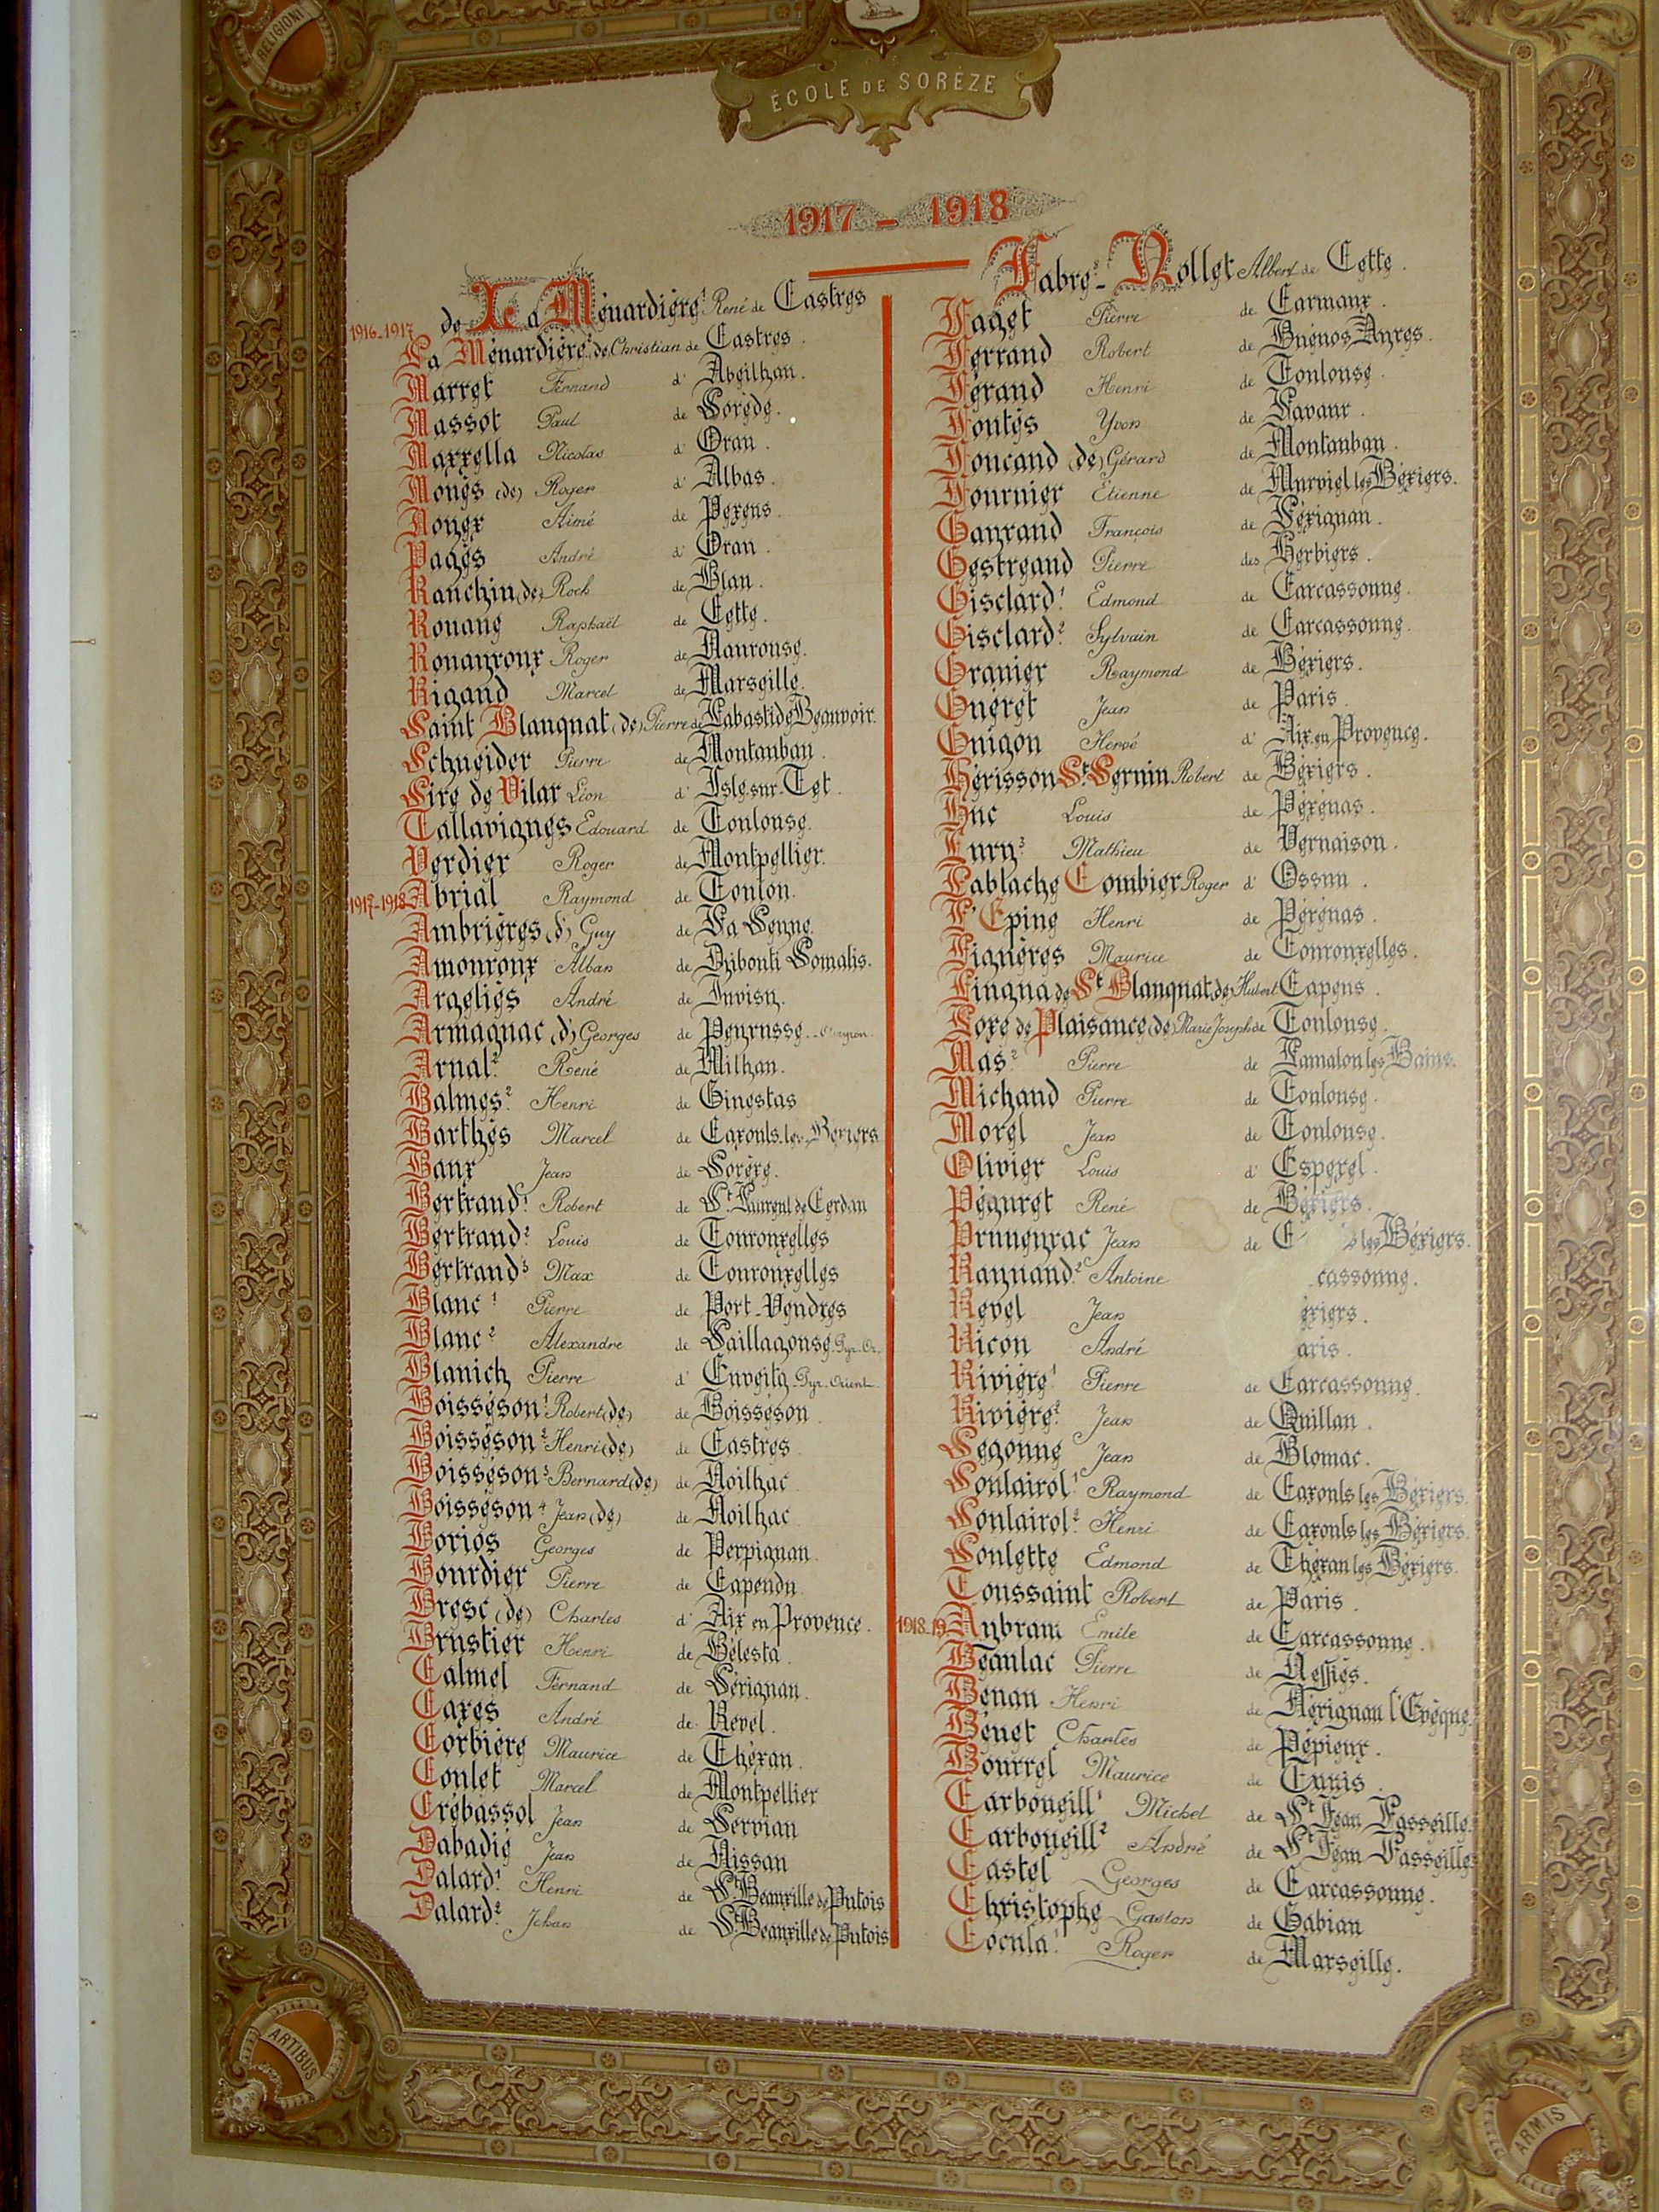 RELIGIONI
ÉCOLE DE SORÈZE
1917 - 1918
de La Ménardière¹ René de Castres
1916-1917
La Ménardière² de Christian de Castres.
Marret Fernand d' Abeilhan.
Massot Paul de Sorède.
Mazzella Nicolas d' Oran.
Monès (de) Roger d' Albas.
Noyer Aimé de Pexens.
Pagès André d' Oran.
Ranchin (de) Roch de Blan.
Rouane Raphaël de Cette.
Rouayroux Roger de Naurouse.
Rigaud Marcel de Marseille.
Saint Blanquat (de) Pierre de Labastide Beauvoir.
Schneider Pierre de Montauban.
Sire de Vilar Léon d' Isle-sur-Tet.
Tallavignes Edouard de Toulouse.
Verdier Roger de Montpellier.
1917-1918 Abrial Raymond de Toulon.
Ambrières (d') Guy de La Senne.
Amouroux Alban de Djibouti Somalis.
Argeliès André de Juvisy.
Armagnac (d') Georges de Peyrusse - Aveyron.
Arnal² René de Milhau.
Balmes² Henri de Ginestas
Barthès Marcel de Cazouls-les-Béziers
Baux Jean de Sorèze.
Bertrand¹ Robert de St Laurent de Cerdan
Bertrand² Louis de Tourouzelles
Bertrand³ Max de Tourouzelles
Blanc¹ Pierre de Port-Vendres
Blanc² Alexandre de Saillagouse. Pyr. Or.
Blanich Pierre d' Enveitg. Pyr. Orient.
Boisséson¹ Robert (de) de Boisséson.
Boisséson² Henri (de) de Castres
Boisséson³ Bernard (de) de Noilhac
Boisséson⁴ Jean (de) de Noilhac
Borios Georges de Perpignan.
Bourdier Pierre de Capendu.
Bresc (de) Charles d' Aix en Provence.
Brustier Henri de Bélesta.
Calmel Fernand de Sérignan.
Cazes André de Revel.
Corbière Maurice de Thézan.
Coulet Marcel de Montpellier
Crébassol Jean de Servian
Dabadie Jean de Nissan
Dalard¹ Henri de St Beauzille de Putois
Dalard² Jehan de St Beauzille de Putois
Fabre² - Nollet Albert de Cette.
Faget Pierre de Carmaux.
Ferrand Robert de Buénos Ayres.
Férand Henri de Toulouse.
Fontès Yvon de Lavaur.
Foucaud (de) Gérard de Montauban.
Fournier Etienne de Murviel les Béziers.
Gayraud François de Sérignan.
Gestreand Pierre des Herbiers.
Gisclard¹ Edmond de Carcassonne.
Gisclard² Sylvain de Carcassonne.
Granier Raymond de Béziers.
Guéret Jean de Paris.
Guigon Hervé d' Aix en Provence.
Hérisson St Sernin Robert de Béziers.
Huc Louis de Pézénas.
Jury³ Mathieu de Vernaison.
Lablache Combier Roger d' Ossun.
L'Epine Henri de Pézénas.
Lignères Maurice de Tourouzelles.
Lingua de St Blanquat (de) Hubert Capens.
Loze de Plaisance (de) Marie Joseph de Toulouse.
Mas² Pierre de Lamalou les Bains.
Michaud Pierre de Toulouse.
Morel Jean de Toulouse.
Olivier Louis d' Esperel.
Péguret René de Béziers.
Pruneyrac Jean de C les Béziers.
Raynaud² Antoine cassonne.
Revel Jean éziers.
Ricon André aris.
Rivière¹ Pierre de Carcassonne.
Rivière² Jean de Quillan.
Segonne Jean de Blomac.
Soulairol¹ Raymond de Cazouls les Béziers.
Soulairol² Henri de Cazouls les Béziers.
Soulette Edmond de Thézan les Béziers.
Toussaint Robert de Paris.
1918-19 Aybram Emile de Carcassonne.
Beaulac Pierre de Neffiès.
Benau Henri de Nérignan l'Evêque.
Bénet Charles de Pépieux.
Bourrel Maurice de Tunis.
Carboneill¹ Michel de St Jean Lasseille.
Carboneill² André de St Jean Lasseille.
Castel Georges de Carcassonne.
Christophe Gaston de Gabian
Cocula¹ Roger de Marseille.
ARTIBUS
ARMIS